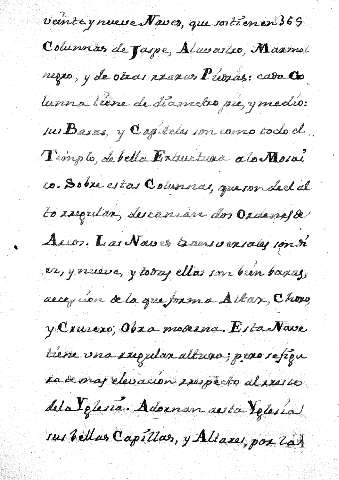 veinte y nueve Naves, que sostienen 365
Columnas de Jaspe, Alavastro, Marmol
negro, y de otras rraras Piedras: cada Co
lunna tiene de diametro pie, y medio:
sus Basas, y Capiteles son como todo el
Templo, de bella Estructura a lo Mosai
co. Sobre estas Columnas, que son de el al
to rregular, descansan dos Ordenes de
Arcos. Las Naves transversales son di
ez, y nueve, y todas ellas son bien baxas,
excepcion de la que forma Altar, Choro,
y Crucero, Obra moderna. Esta Nave
tiene una rregular altura; pero se figu
ra de mas elevacion rrespecto al rresto
de la Yglesia. Adornan a esta Yglesia
sus bellas Capillas, y Altares, por las